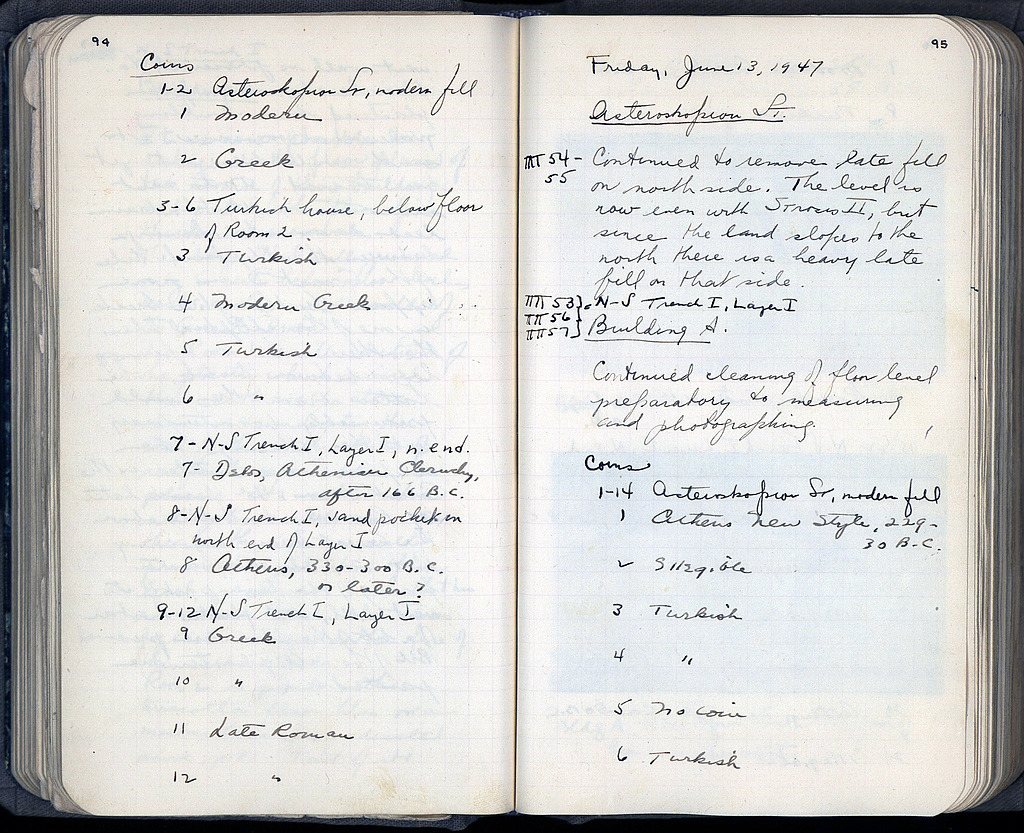 94
Coins
1-2 Asteroskopion St, modern fill
1 Modern
2 Greek
3-6 Turkish house, below floor
of Room 2.
3 Turkish
4 Modern Greek
5 Turkish
6 "
7- N-S Trench I, Layer I, n. end.
7- Delos, Athenian Cleruchy,
after 166 B.C.
8- N-S Trench I, sand pocket in
north end of Layer I
8 Athens, 330-300 B.C.
or later?
9-12 N-S Trench I, Layer I
9 Greek
10 "
11 Late Roman
12 "
95
Friday, June 13, 1947
Asteroskopion St.
ΠΠ 54- Continued to remove late fill
55 on north side. The level is
now even with Strosis II, but
since the land slopes to the
north there is a heavy late
fill on that side.
ΠΠ 53 N-S Trench I, Layer I
ΠΠ 56
ΠΠ 57 Building A.
Continued cleaning of floor level
preparatory to measuring
and photographing.
Coins
1-14 Asteroskopion St, modern fill
1 Athens New Style, 229-
30 B.C.
2 Illegible
3 Turkish
4 "
5 No coin
6 Turkish